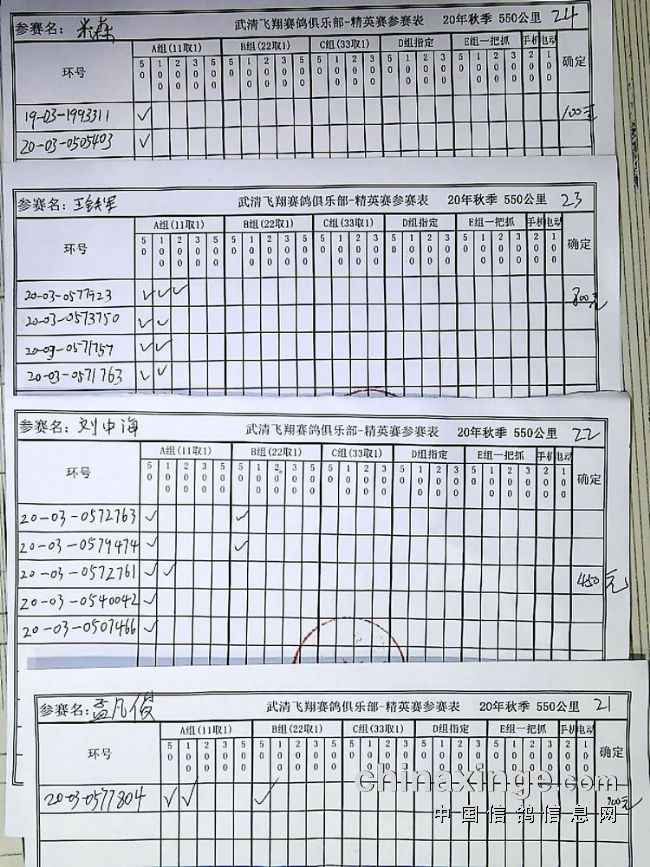 参赛名: 米森 武清飞翔赛鸽俱乐部-精英赛参赛表 20年秋季 550公里 24
环号 A组(11取1) B组(22取1) C组(33取1) D组指定 E组一把抓 手机 电动 确定
50 100 200 300 500 50 100 200 300 500 50 100 200 300 500 50 100 200 300 50 100 200 300 200 100
19-03-1993311 ✓ 100元
20-03-0505403 ✓
参赛名: 武清飞翔赛鸽俱乐部-精英赛参赛表 20年秋季 550公里 23
环号 A组(11取1) B组(22取1) C组(33取1) D组指定 E组一把抓 手机 电动 确定
50 100 200 300 500 50 100 200 300 500 50 100 200 300 500 50 100 200 300 50 100 200 300 200 100
20-03-0577923 ✓ ✓ ✓ 800元
20-03-0573750 ✓ ✓
20-03-0571757 ✓ ✓
20-03-0571763 ✓ ✓
参赛名: 刘中海 武清飞翔赛鸽俱乐部-精英赛参赛表 20年秋季 550公里 22
环号 A组(11取1) B组(22取1) C组(33取1) D组指定 E组一把抓 手机 电动 确定
50 100 200 300 500 50 100 200 300 500 50 100 200 300 500 50 100 200 300 50 100 200 300 200 100
20-03-0572763 ✓ ✓
20-03-0579474 ✓ ✓
20-03-0572761 ✓ ✓ 450元
20-03-0540042 ✓
20-03-0507466 ✓
参赛名: 孟凡俊 武清飞翔赛鸽俱乐部-精英赛参赛表 20年秋季 550公里 21
环号 A组(11取1) B组(22取1) C组(33取1) D组指定 E组一把抓 手机 电动 确定
50 100 200 300 500 50 100 200 300 500 50 100 200 300 500 50 100 200 300 50 100 200 300 200 100
20-03-0577804 ✓ ✓ ✓
chinaxinge.com
中国信鸽信息网